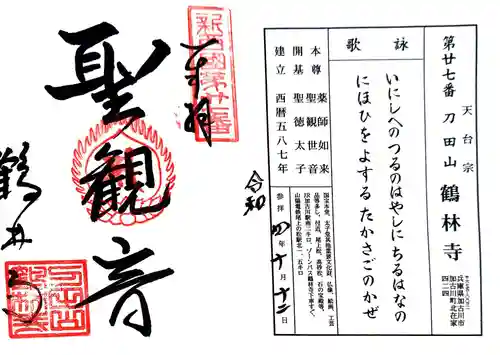 奉拝
新西國第廿七番
聖観音
鶴林寺
令和
第廿七番 刀田山 鶴林寺
天台宗
兵庫県加古川市
加古川町北在家
四二四
詠歌
いにしへのつるのはやしにちるはなの
にほひをよするたかさごのかぜ
本尊 薬師如来
聖観世音
開基 聖徳太子
建立 西暦五八七年
国宝本堂、太子堂其他重要文化財、仏像、絵画、工芸
品等多し。付近、尾上松、高砂松、石の宝殿等。
JR加古川駅南二キロ、ゾーンバス鶴林寺下車すぐ。
山陽電鉄尾上の松駅北一、五キロ
参拝 四年十月十二日